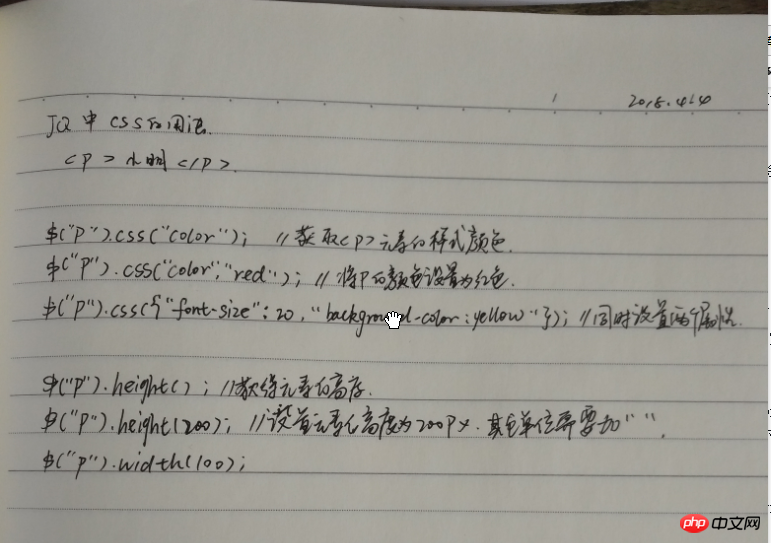 2018.4.4
JQ中css的用法.
<p>小明</p>.
$("p").css("color"); //获取<p>元素的样式颜色.
$("p").css("color","red"); //将p的颜色设置为红色.
$("p").css({"font-size":20,"background-color:yellow"}); //同时设置两个属性.
$("p").height(); //获得元素的高度.
$("p").height(200); //设置元素的高度为200px.其它单位需要加" ".
$("p").width(100);
php 中文网